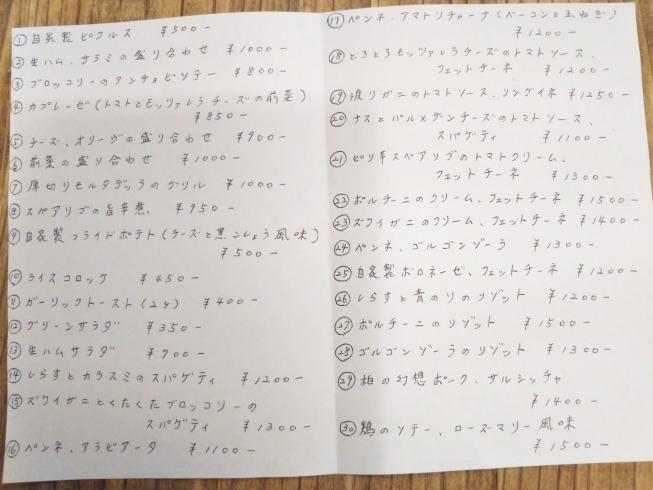 ① 自家製ピクルス ¥500-
② 生ハム、サラミの盛り合わせ ¥1000-
③ ブロッコリーのアンチョビソテー ¥800-
④ カプレーゼ(トマトとモッツァレラチーズの前菜)
¥850-
⑤ チーズ、オリーヴの盛り合わせ ¥900-
⑥ 前菜の盛り合わせ ¥1000-
⑦ 厚切りモルタデッラのグリル ¥1000-
⑧ スペアリブの旨辛煮、 ¥950-
⑨ 自家製フライドポテト(チーズと黒こしょう風味)
¥500-
⑩ ライスコロッケ ¥450-
⑪ ガーリックトースト(2ヶ) ¥400-
⑫ グリーンサラダ ¥350-
⑬ 生ハムサラダ ¥700-
⑭ しらすとカラスミのスパゲティ ¥1200-
⑮ ズワイガニとくたくたブロッコリーの
スパゲティ ¥1300-
⑯ ペンネ、アラビアータ ¥1100-
⑰ ペンネ、アマトリチャーナ(ベーコンと玉ねぎ)
¥1200-
⑱ とろとろモッツァレラチーズのトマトソース、
フェットチーネ ¥1200-
⑲ 渡りガニのトマトソース、リングイネ ¥1250-
⑳ ナスとパルメザンチーズのトマトソース、
スパゲティ ¥1100-
㉑ ピリ辛スペアリブのトマトクリーム、
フェットチーネ ¥1300-
㉒ ポルチーニのクリーム、フェットチーネ ¥1500-
㉓ ズワイガニのクリーム、フェットチーネ ¥1400-
㉔ ペンネ、ゴルゴンゾーラ ¥1300-
㉕ 自家製ボロネーゼ、フェットチーネ ¥1200-
㉖ しらすと青のりのリゾット ¥1200-
㉗ ポルチーニのリゾット ¥1500-
㉘ ゴルゴンゾーラのリゾット ¥1300-
㉙ 柏の幻想ポーク、サルシッチャ
¥1400-
㉚ 鶏のソテー、ローズマリー風味
¥1500-